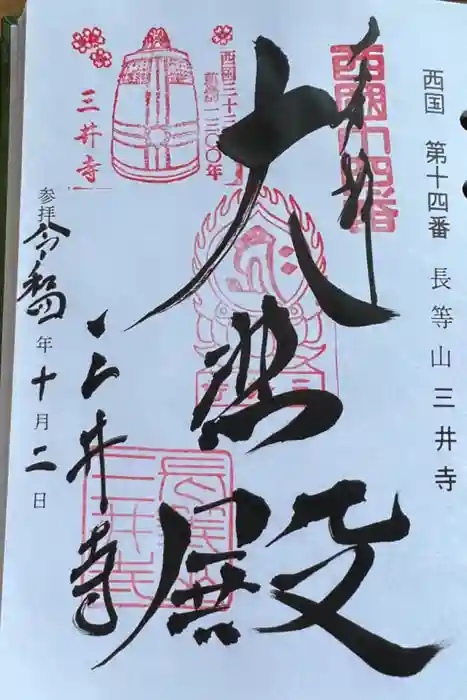 西国 第十四番 長等山 三井寺
奉拝
西國十四番
大悲殿
西国三十三
一三〇〇年
三井寺
三井寺
三井寺
参拝 令和四年十月二日